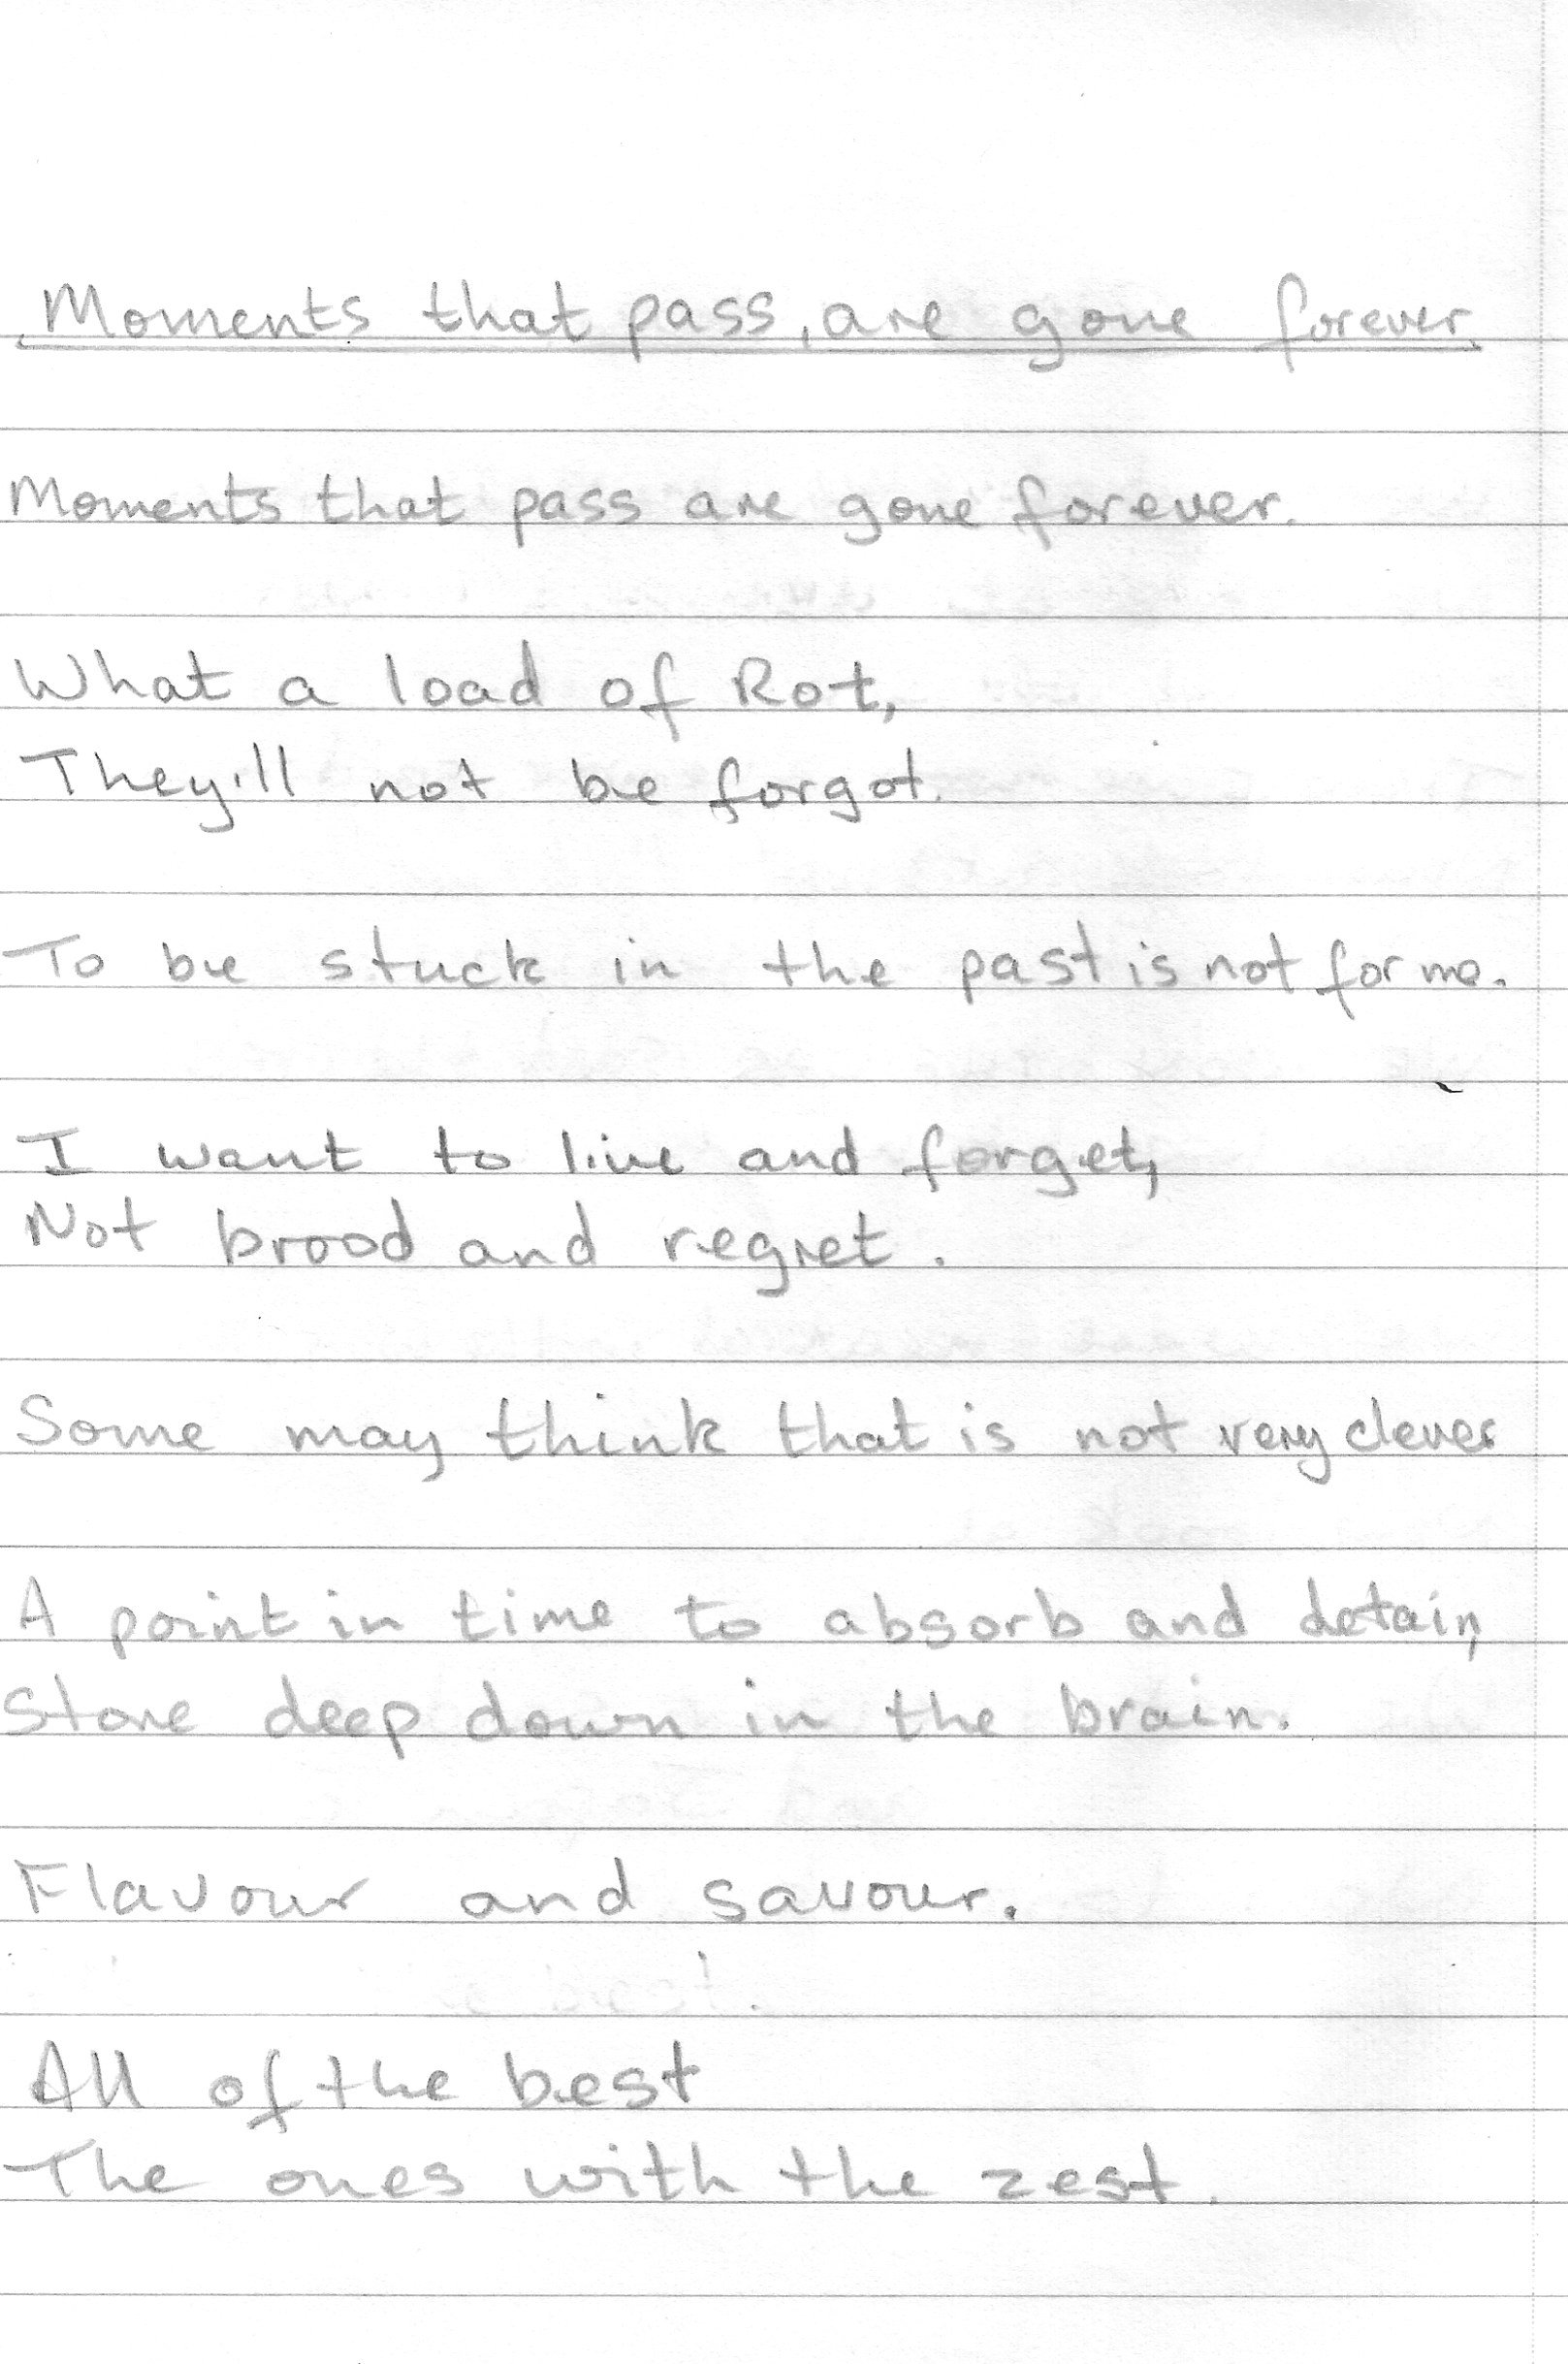 Moments that pass, are gone forever.
Moments that pass are gone forever.
What a load of Rot,
They'll not be forgot.
To be stuck in the past is not for me.
I want to live and forget,
Not brood and regret.
Some may think that is not very clever
A point in time to absorb and detain,
Store deep down in the brain.
Flavour and savour.
All of the best
The ones with the zest.